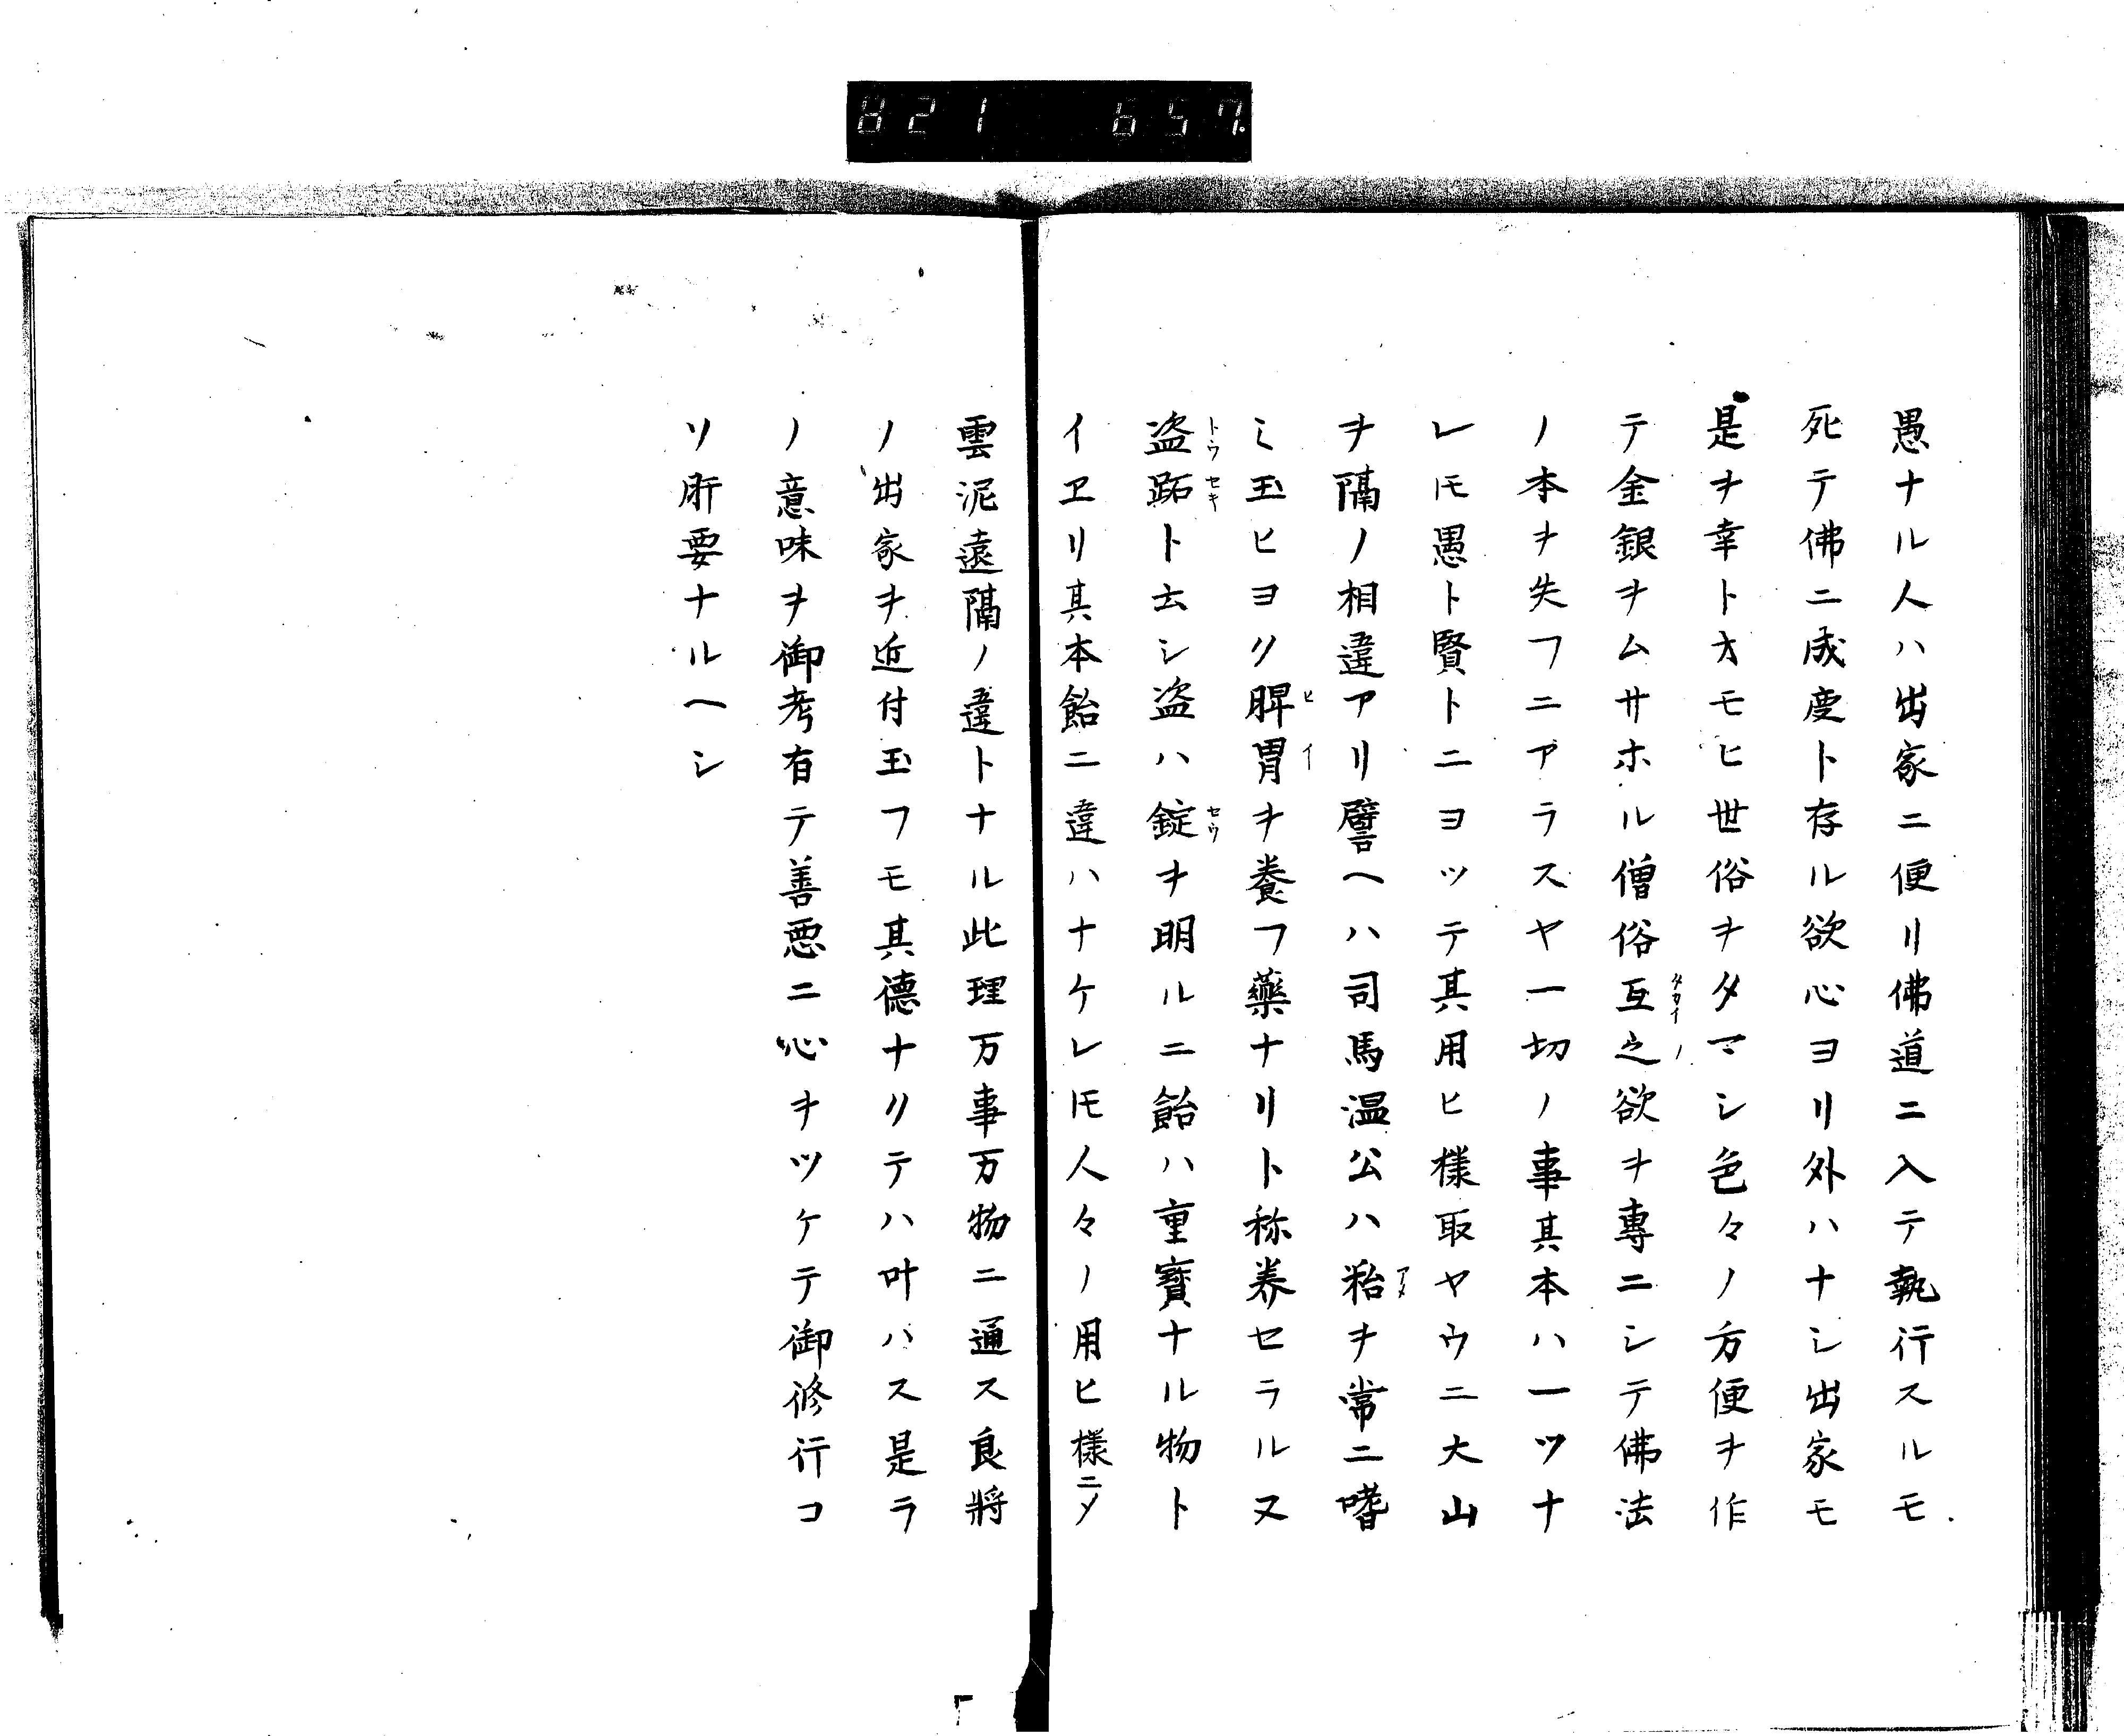 821 657.
愚ナル人ハ出家ニ便リ佛道ニ入テ執行スルモ
死テ佛ニ成度ト存ル欲心ヨリ外ハナシ出家モ
是ヲ幸トオモヒ世俗ヲタマシ色々ノ方便ヲ作
テ金銀ヲムサホル僧俗互之欲ヲ專ニシテ佛法
ノ本ヲ失フニアラスヤ一切ノ事其本ハ一ツナ
レ𪜈愚ト賢トニヨッテ其用ヒ様取ヤウニ大山
ヲ隔ノ相違アリ譬ヘハ司馬温公ハ粭ヲ常ニ嗜
ミ玉ヒヨク脾胃ヲ養フ藥ナリト称美セラル又
盗跖ト云シ盗ハ錠ヲ明ルニ飴ハ重寶ナル物ト
イヱリ其本飴ニ違ハナケレ𪜈人々ノ用ヒ様ニ〆
雲泥遠隔ノ違トナル此理万事万物ニ通ス良將
ノ出家ヲ近付玉フモ其德ナクテハ叶ハス是ラ
ノ意味ヲ御考有テ善悪ニ心ヲツケテ御修行コ
ソ肝要ナルヘシ